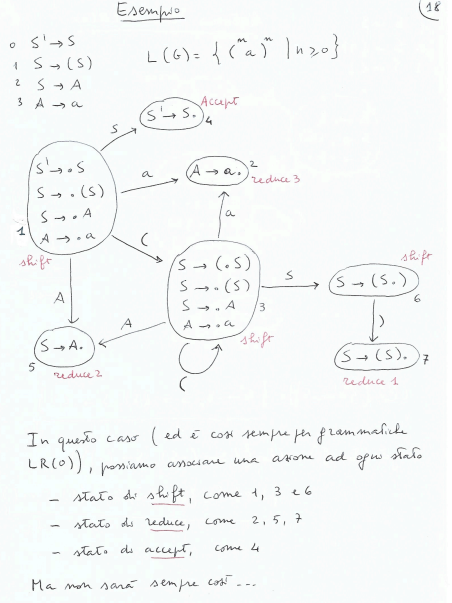 Esempio
18
0 S' → S
1 S → (S)
2 S → A
3 A → a
L(G) = { (ⁿ a )ⁿ | n ≥ 0 }
S' → S.
Accept
4
S
S' → .S
S → .(S)
S → .A
A → .a
1
shift
a
A → a.
2
reduce 3
(
a
S → (.S)
S → .(S)
S → .A
A → .a
3
shift
(
S
S → (S.)
shift
6
)
S → (S).
7
reduce 1
A
A
S → A.
5
reduce 2
In questo caso (ed è così sempre per grammatiche
LR(0)), possiamo associare una azione ad ogni stato
- stato di shift, come 1, 3 e 6
- stato di reduce, come 2, 5, 7
- stato di accept, come 4
Ma non sarà sempre così ...